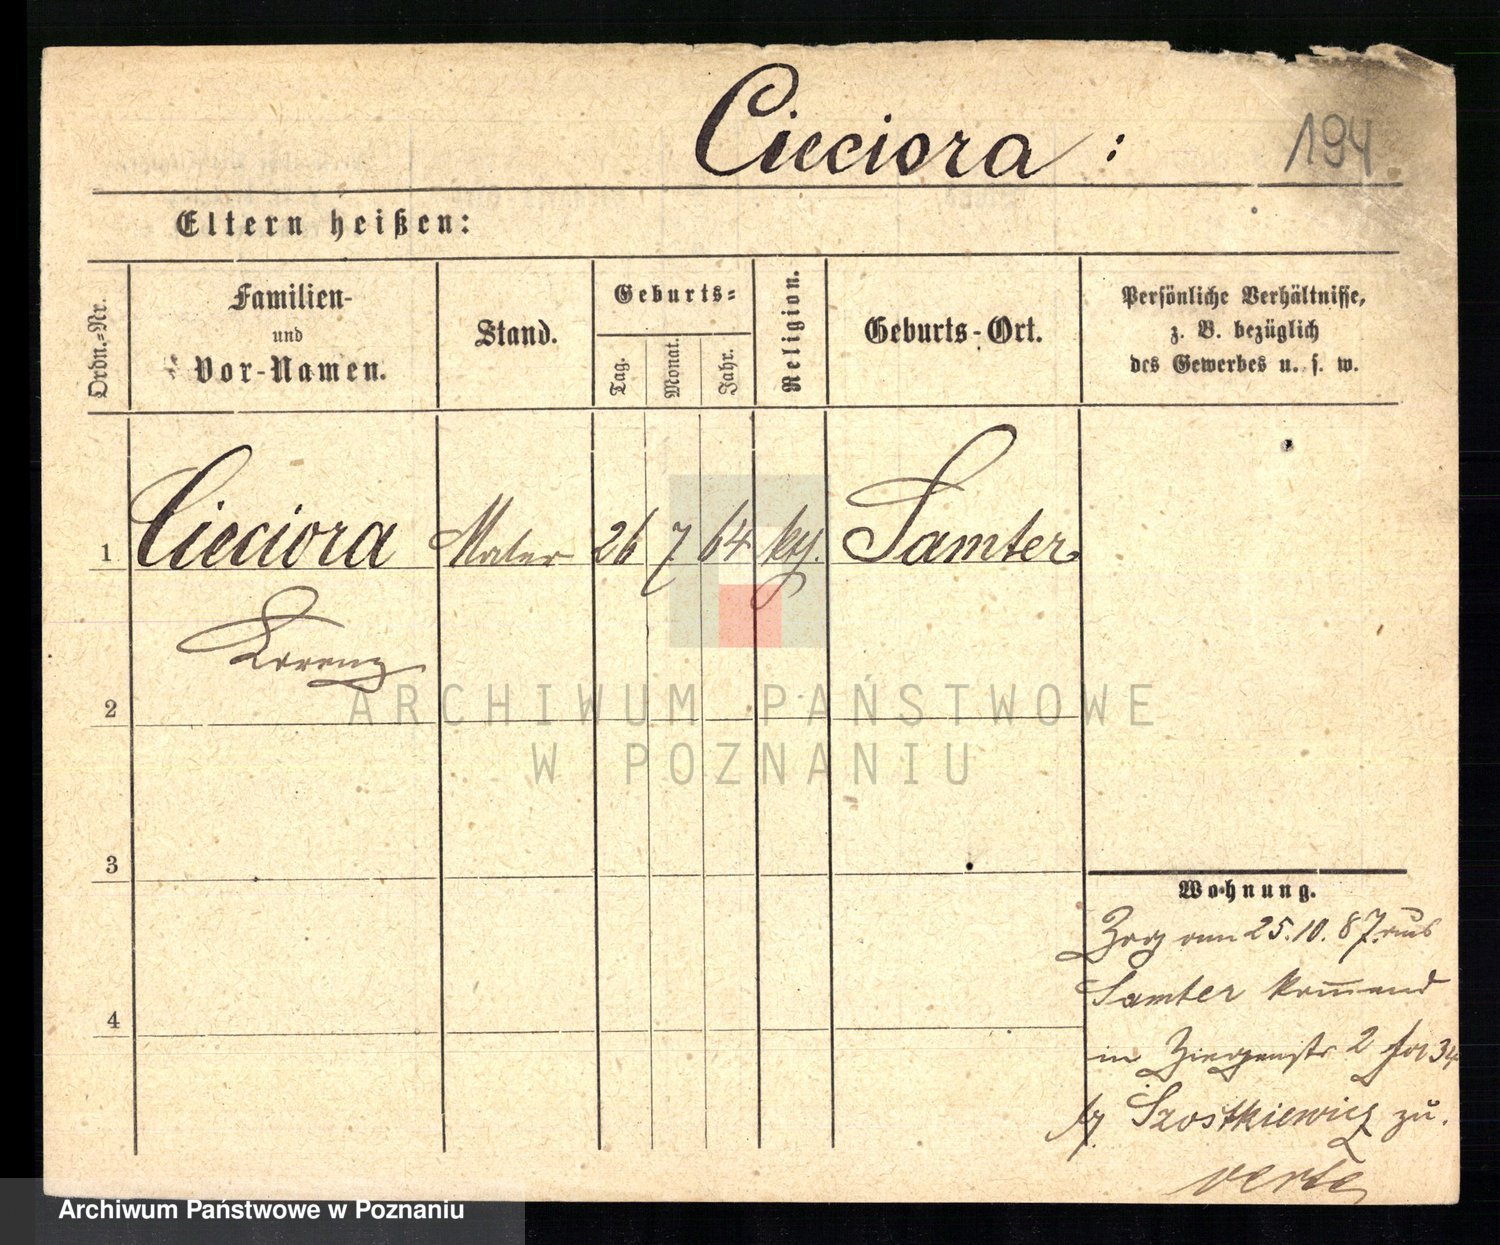 Cieciora :
194
Eltern heißen:
Ordn.-Nr.
Familien-
und
Vor-Namen.
Stand.
Geburts-
Tag.
Monat.
Jahr.
Religion.
Geburts-Ort.
Persönliche Verhältnisse,
z. B. bezüglich
des Gewerbes u. s. w.
1 Cieciora Maler 26 7 64 Samter
Lorenz
2
3
4
Wohnung.
Zog am 25.10.87. aus
Samter kommend
in Ziegenstr 2
Szostkiewicz zu.
verte
ARCHIWUM PAŃSTWOWE
W POZNANIU
Archiwum Państwowe w Poznaniu